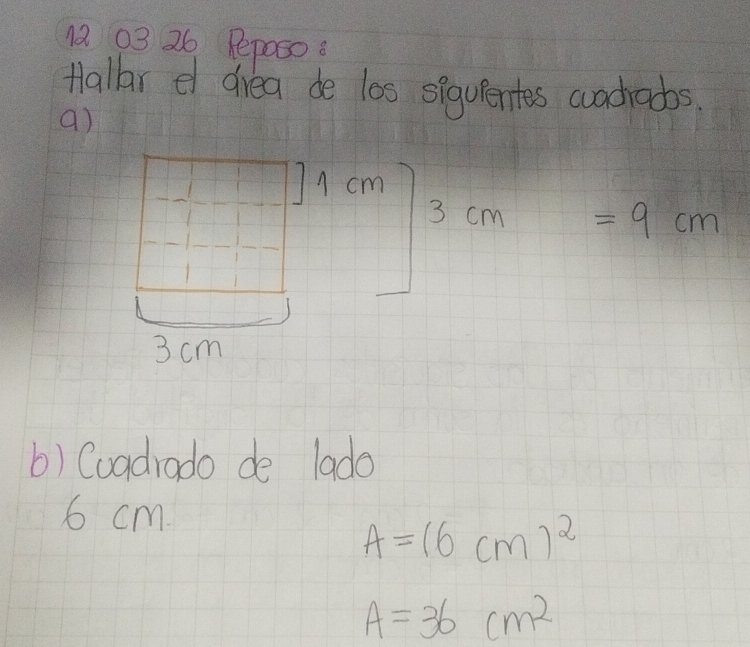 12 03 26 Reposo:
Hallar el área de los siguientes cuadrados.
a)
1 cm
3 cm
= 9 cm
3 cm
b) Cuadrado de lado
6 cm.
A = (6 cm)²
A = 36 cm²